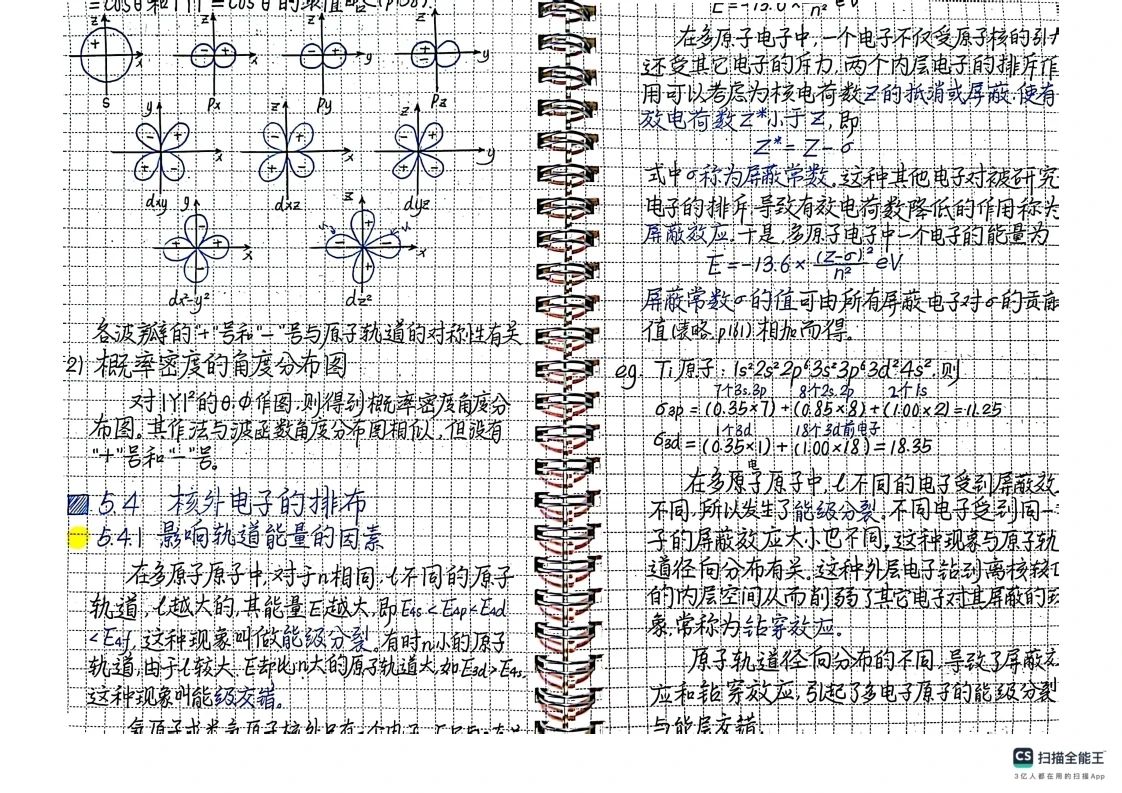 =cosθ和|Y|=cosθ的取值略(p158).
z z z z
+ - + - + - +
x x y y
s px py pz
y z z
- + - + - +
+ - + - + -
x x y
dxy dxz dyz
y z
+ - + - + - + -
x x
dx²-y² dz²
各波瓣的"+"号和"-"号与原子轨道的对称性有关
2) 概率密度的角度分布图
对|Y|²的θ.Φ作图,则得到概率密度角度分
布图。其作法与波函数角度分布图相似,但没有
"+"号和"-"号。
5.4 核外电子的排布
5.4.1 影响轨道能量的因素
在多原子原子中,对于n相同,l不同的原子
轨道,l越大的,其能量E越大,即E4s<E4p<E4d
<E4f,这种现象叫做能级分裂。有时n小的原子
轨道,由于l较大,E却比n大的原子轨道大,如E3d>E4s,
这种现象叫能级交错。
E=-13.6× n² eV
在多原子电子中,一个电子不仅受原子核的引力
还受其它电子的斥力,两个内层电子的排斥作
用可以考虑为核电荷数Z的抵消或屏蔽,使有
效电荷数Z*小于Z,即
Z*=Z-σ
式中σ称为屏蔽常数。这种其他电子对被研究
电子的排斥,导致有效电荷数降低的作用称为
屏蔽效应。于是,多原子电子中一个电子的能量为
E=-13.6×(Z-σ)²/n² eV
屏蔽常数σ的值可由所有屏蔽电子对σ的贡献
值(策略.p161)相加而得。
eg. Ti原子:1s²2s²2p⁶3s²3p⁶3d²4s².则
7个3s.3p 8个2s.2p 2个1s
σ3p=(0.35×7)+(0.85×8)+(1.00×2)=11.25
1个3d 18个3d前电子
σ3d=(0.35×1)+(1.00×18)=18.35
电
在多原子原子中,l不同的电子受到屏蔽效
不同,所以发生了能级分裂。不同电子受到同一
子的屏蔽效应大小也不同,这种现象与原子轨
道径向分布有关。这种外层电子钻到离核较近
的内层空间从而削弱了其它电子对其屏蔽的现
象,常称为钻穿效应。
原子轨道径向分布的不同,导致了屏蔽效
应和钻穿效应,引起了多电子原子的能级分裂
与能层交错.
CS 扫描全能王
3亿人都在用的扫描App